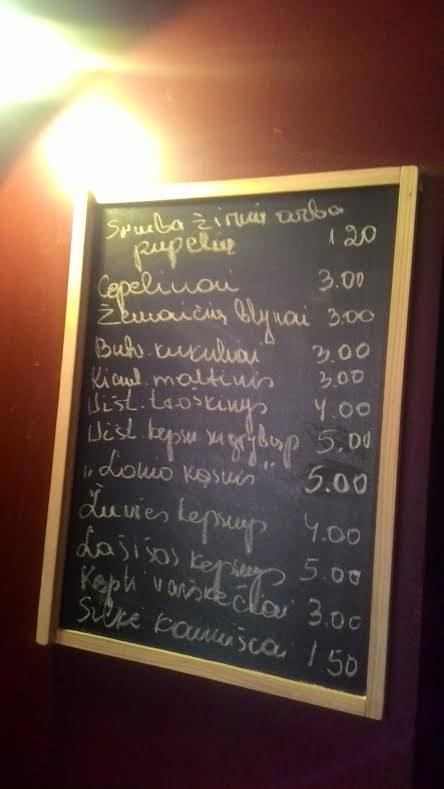 Sriuba žirnių arba
pupelių 1 20
Cepelinai 3.00
Žemaičių blynai 3.00
Bulv. kukuliai 3.00
Kiaul. maltinis 3.00
Višt. 4.00
Višt. kepsn su grybų p 5.00
„Lomo kąsnis" 5.00
Žuvies kepsnys 4.00
Lašišos kepsnys 5.00
Kepti varškėčiai 3.00
Silkė 1 50